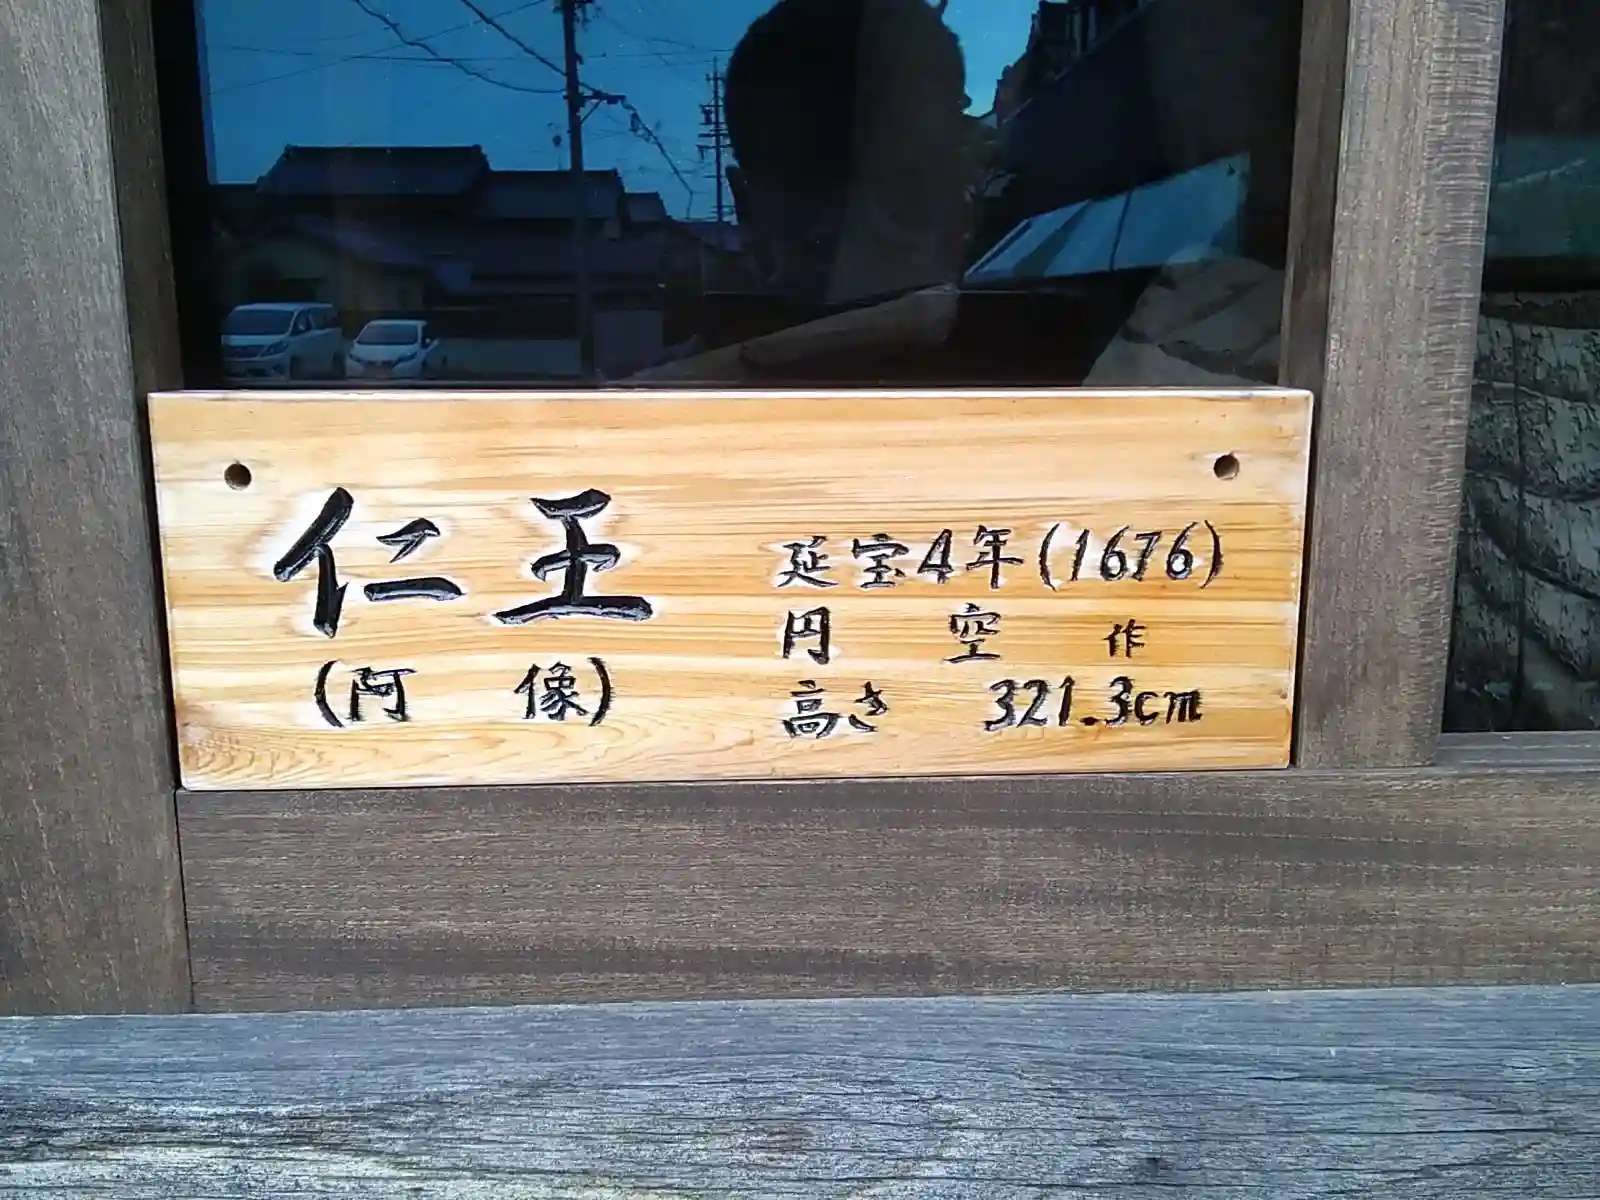 仁王
(阿像)
延宝4年(1676)
円空作
高さ 321.3cm